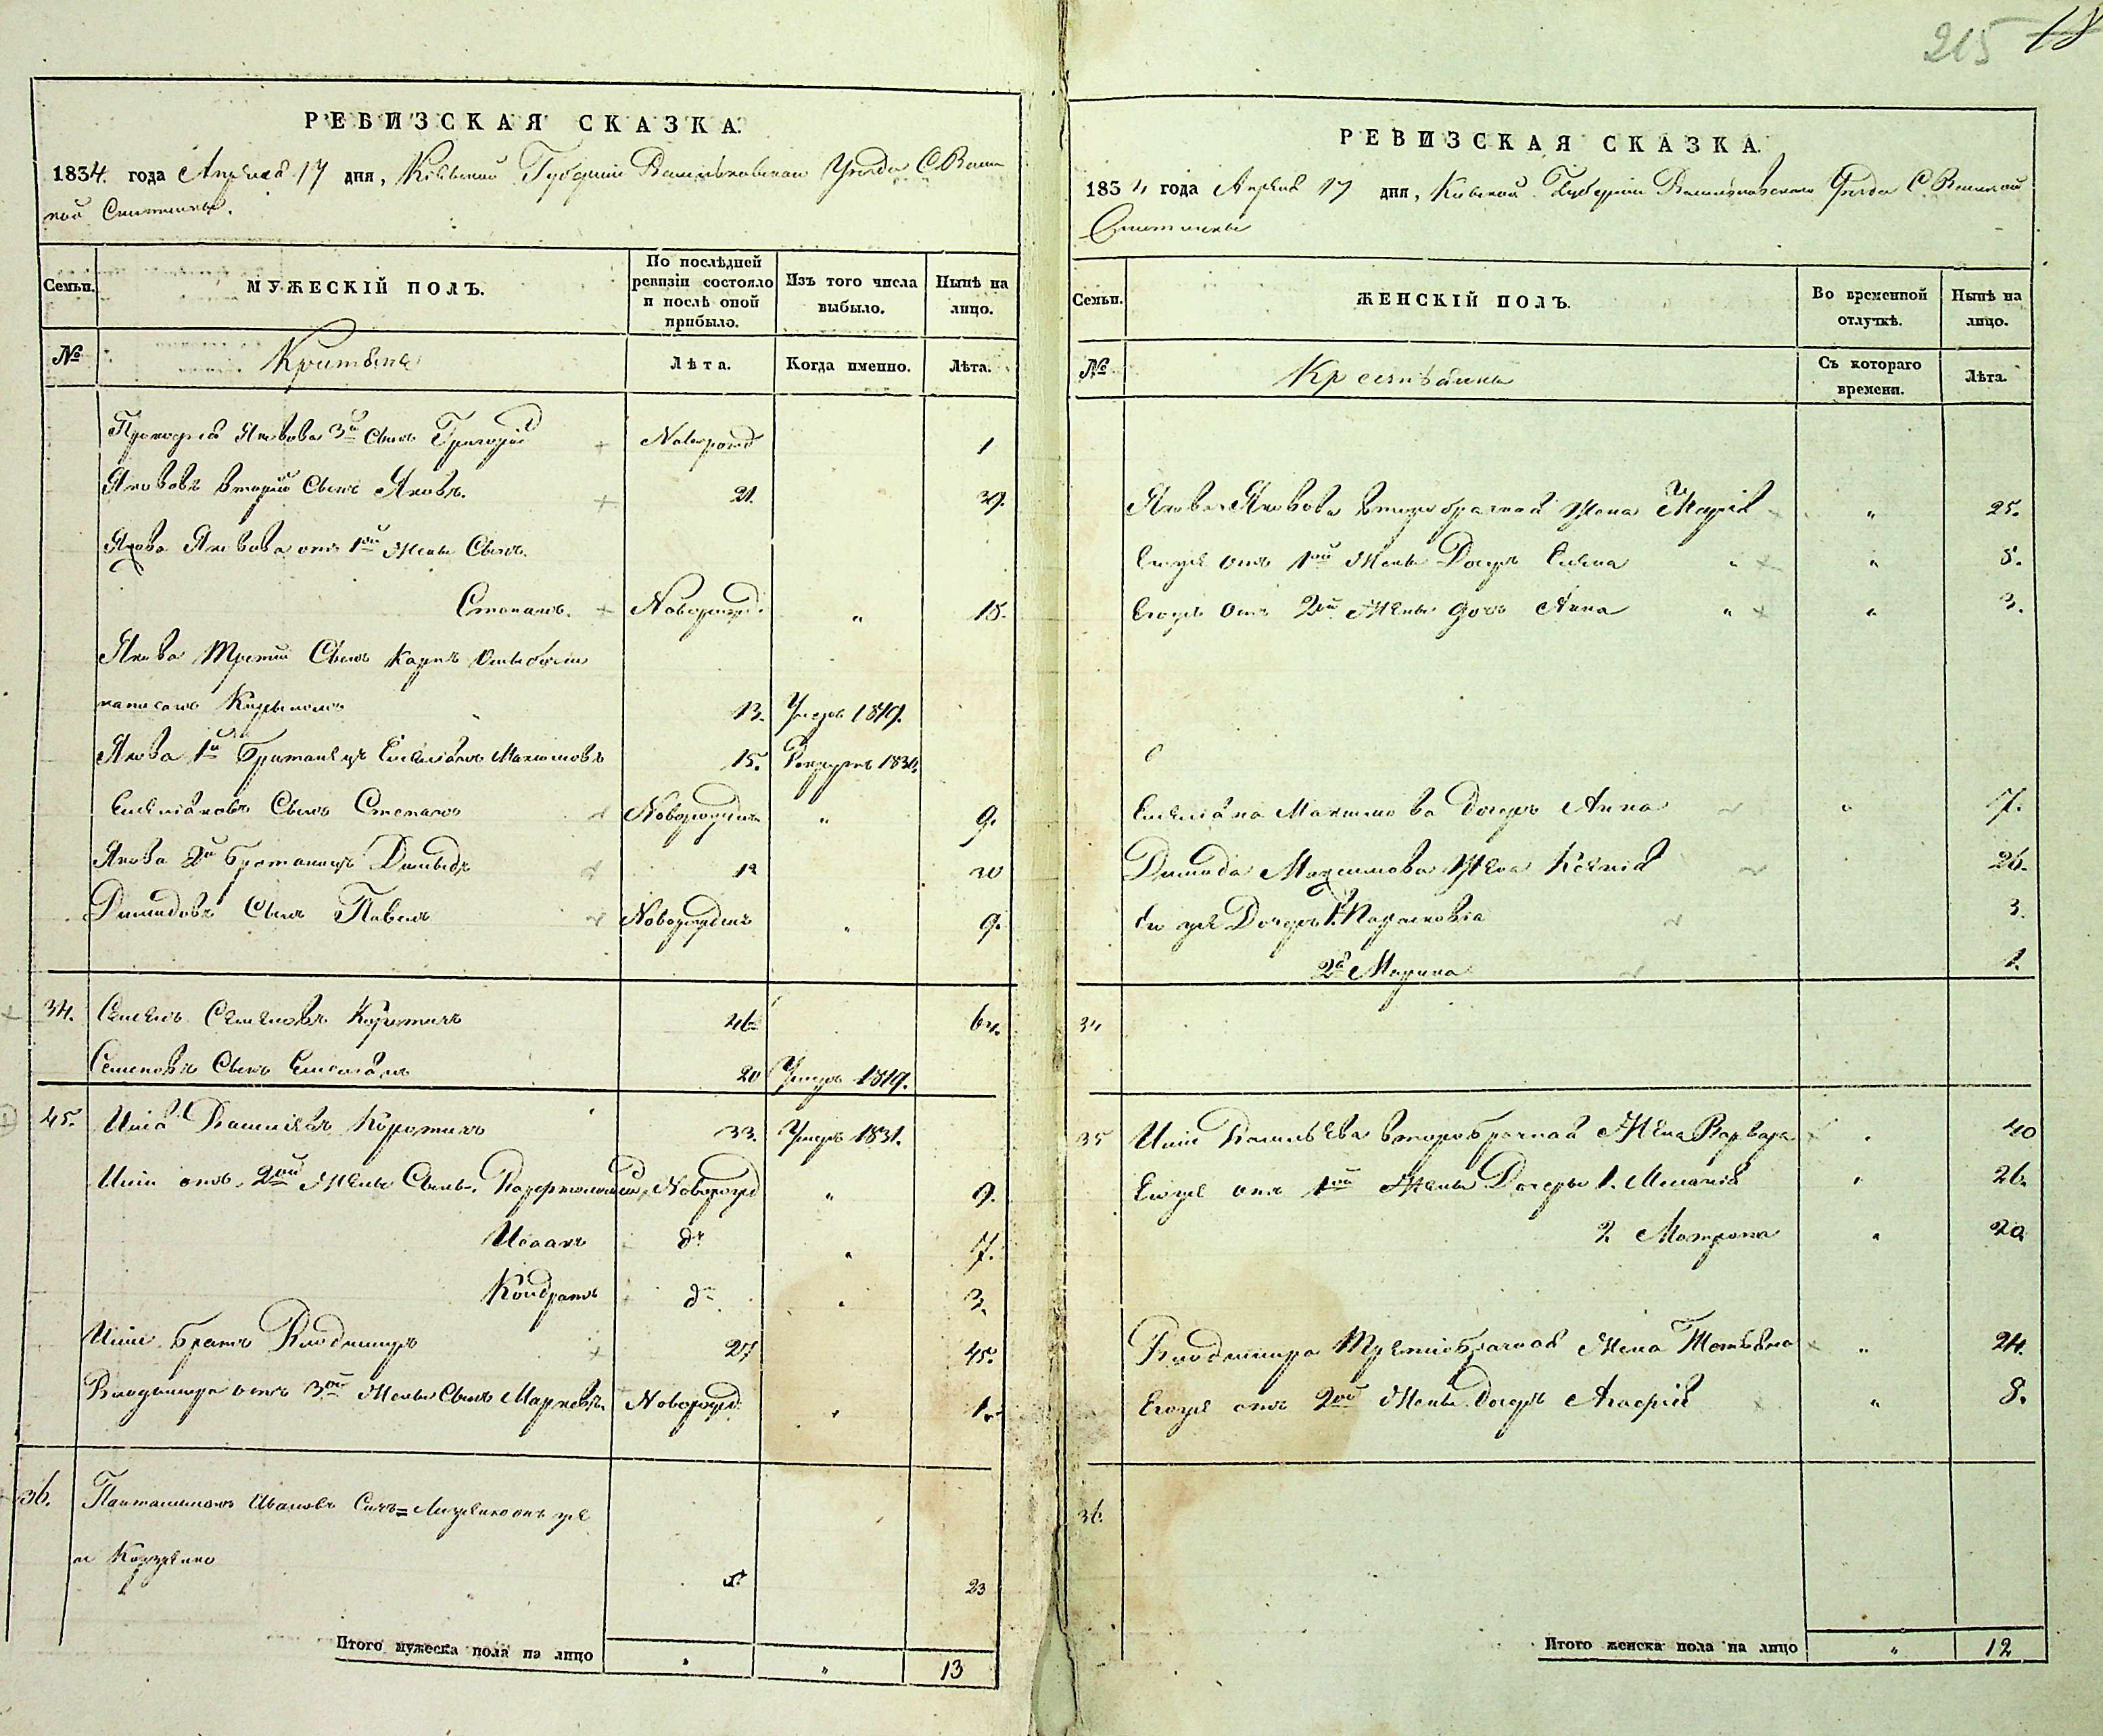 215 18
РЕВИЗСКАЯ СКАЗКА.
1834. года Апреля 17 дня, Кіевской Губерніи Васильковскаго Уезда С. Вели
кой Снитинки.
Семьи.
МУЖЕСКІЙ ПОЛЪ.
По послѣдней ревизіи состояло и послѣ оной прибыло.
Изъ того числа выбыло.
Нынѣ на лицо.
№
Лѣта.
Когда именно.
Лѣта.
Прокофія Яковова 3й Сынъ Григорій Новорожд 1
Якововъ вторый Сынъ Яковъ. 21. 39.
Якова Яковова отъ 1ой Жены Сынъ
Степанъ. Новорожд. " 18.
Якова Третій Сынъ Карпъ
написанъ 13. Умеръ 1819.
Якова 1й Братанецъ Емельянъ Максимовъ 15. 1830.
Емельяновъ Сынъ Степанъ Новорожденъ " 9.
Якова 2й Братанецъ Демидъ 12 30
Демидовъ Сынъ Павелъ Новорожденъ " 9.
34. Семенъ Семеновъ Коротичъ 46 64.
Семеновъ Сынъ Емельянъ 20 Умеръ 1819.
45. Илія Василіевъ Коротичъ 33. Умеръ 1831.
Иліи отъ 2ой Жены Сынъ. Варфоломей Новорожд " 9.
Исаакъ до " 7.
Кондратъ до " 3.
Иліи братъ Владимиръ 27 45.
Владимира отъ 3ой Жены Сынъ Новорожд. " 1
36. Пантелимонъ Ивановъ Сынъ=
5. 23
Итого мужеска пола на лицо " " 13
РЕВИЗСКАЯ СКАЗКА.
1834 года Апреля 17 дня, Кіевской Губерніи Васильковскаго Уезда С. Великой
Снитинки
Семьи.
ЖЕНСКІЙ ПОЛЪ.
Во временной отлучкѣ.
Нынѣ на лицо.
№
Крестьяне
Съ котораго времени.
Лѣта.
Якова Яковова второбрачная Жена Марія " 25.
Егоже отъ 1ой Жены Дочерь Елена " " 8.
Егоже отъ 2ой Жены дочь Анна " " 3.
Емельяна Максимова Дочерь Анна " 7.
Демида Максимова Жена Ксенія 26.
Его же Дочери 1. Парасковіа 3.
2я Марина 1.
34
35 Иліи Васильева второбрачная Жена Варвара " 40
Егоже отъ 1ой Жены Дочеры 1. Меланія " 26.
2. Матрона " 20
Владимира Третіобрачная Жена Татьяна " 24.
Егоже отъ 2ой Жены Дочерь Агафія " 8.
36.
Итого женска пола на лицо " 12